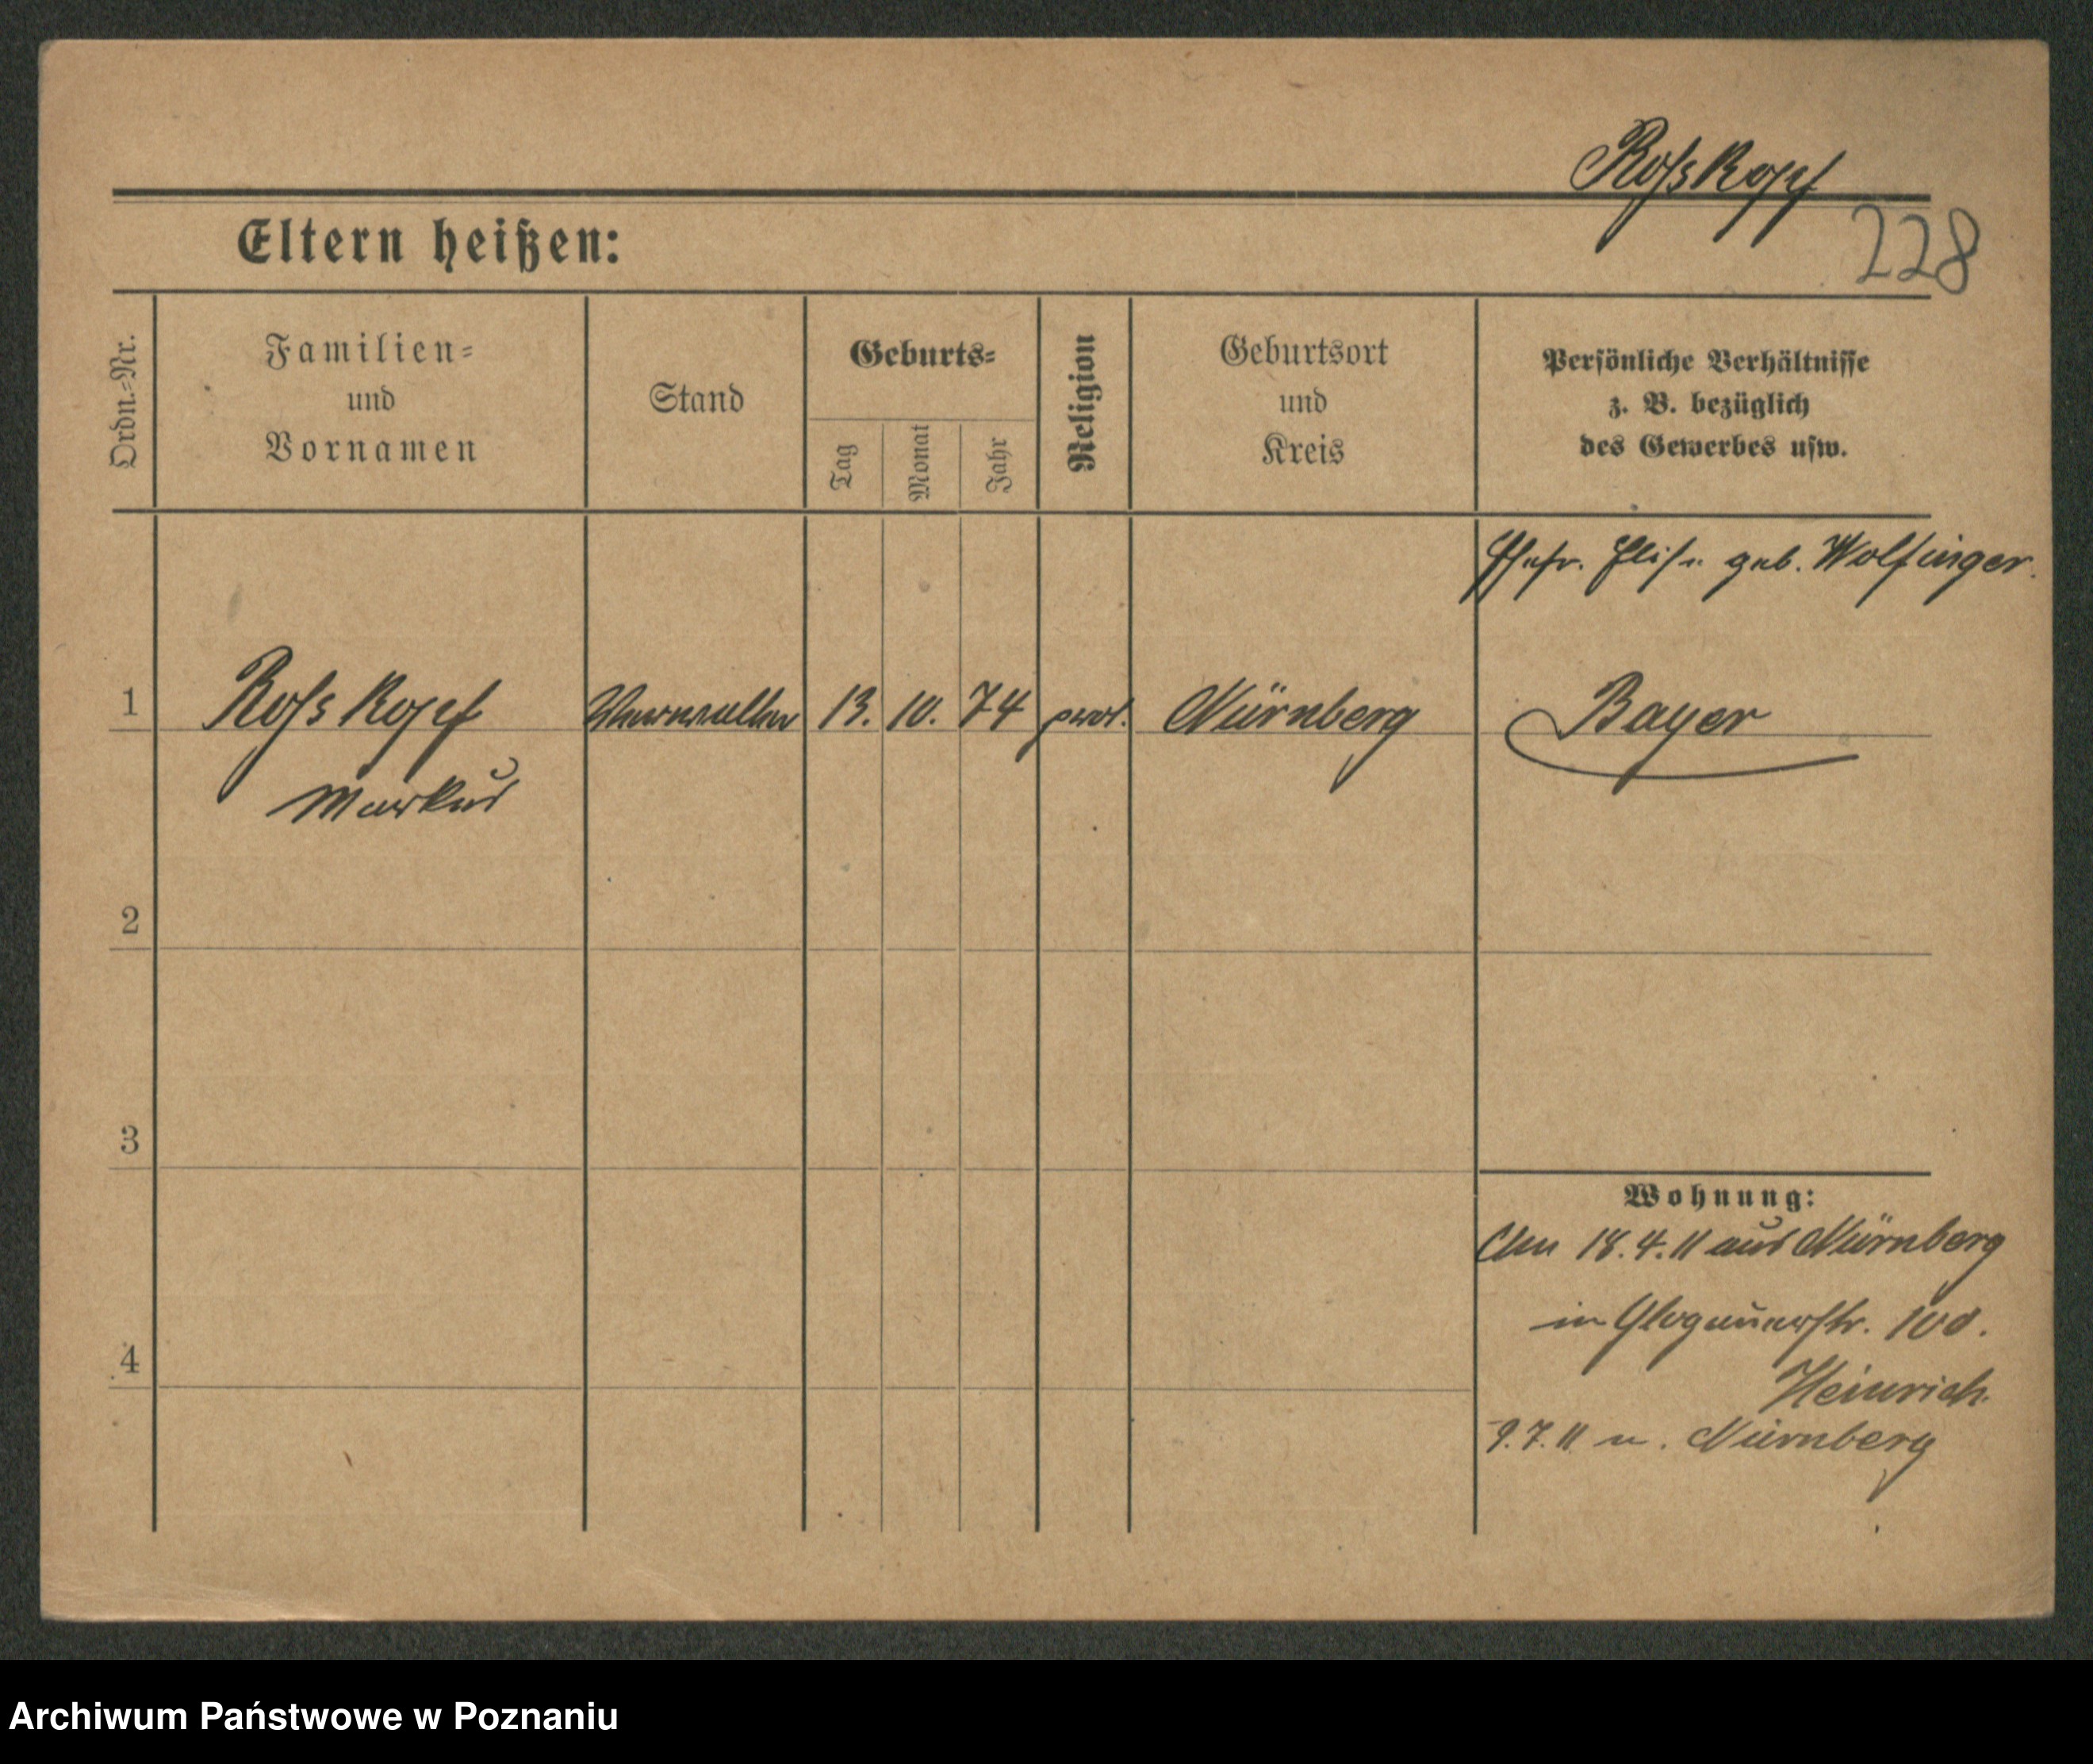 Roßkopf
228
Eltern heißen:
Ordn.=Nr.
Familien=
und
Vornamen
Stand
Geburts=
Tag
Monat
Jahr
Religion
Geburtsort
und
Kreis
Persönliche Verhältnisse
z. B. bezüglich
des Gewerbes usw.
Ehefr. Elise geb. Wolfinger.
1 Roßkopf 13. 10. 74 prot. Nürnberg Bayer
Markus
2
3
Wohnung:
18.4.11 aus Nürnberg
in Glogauerstr. 100.
4
Heinrich.
9.7.11 n. Nürnberg
Archiwum Państwowe w Poznaniu